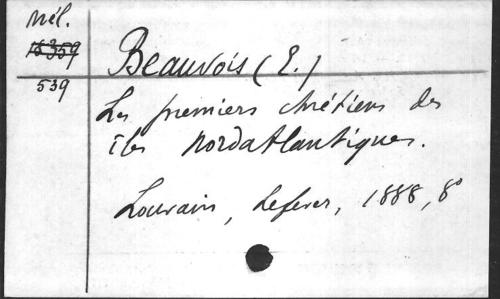 Mél.
539
Beauvois (E.)
Les premiers chrétiens des
îles nordatlantiques.
Louvain, Lefever, 1888, 8°